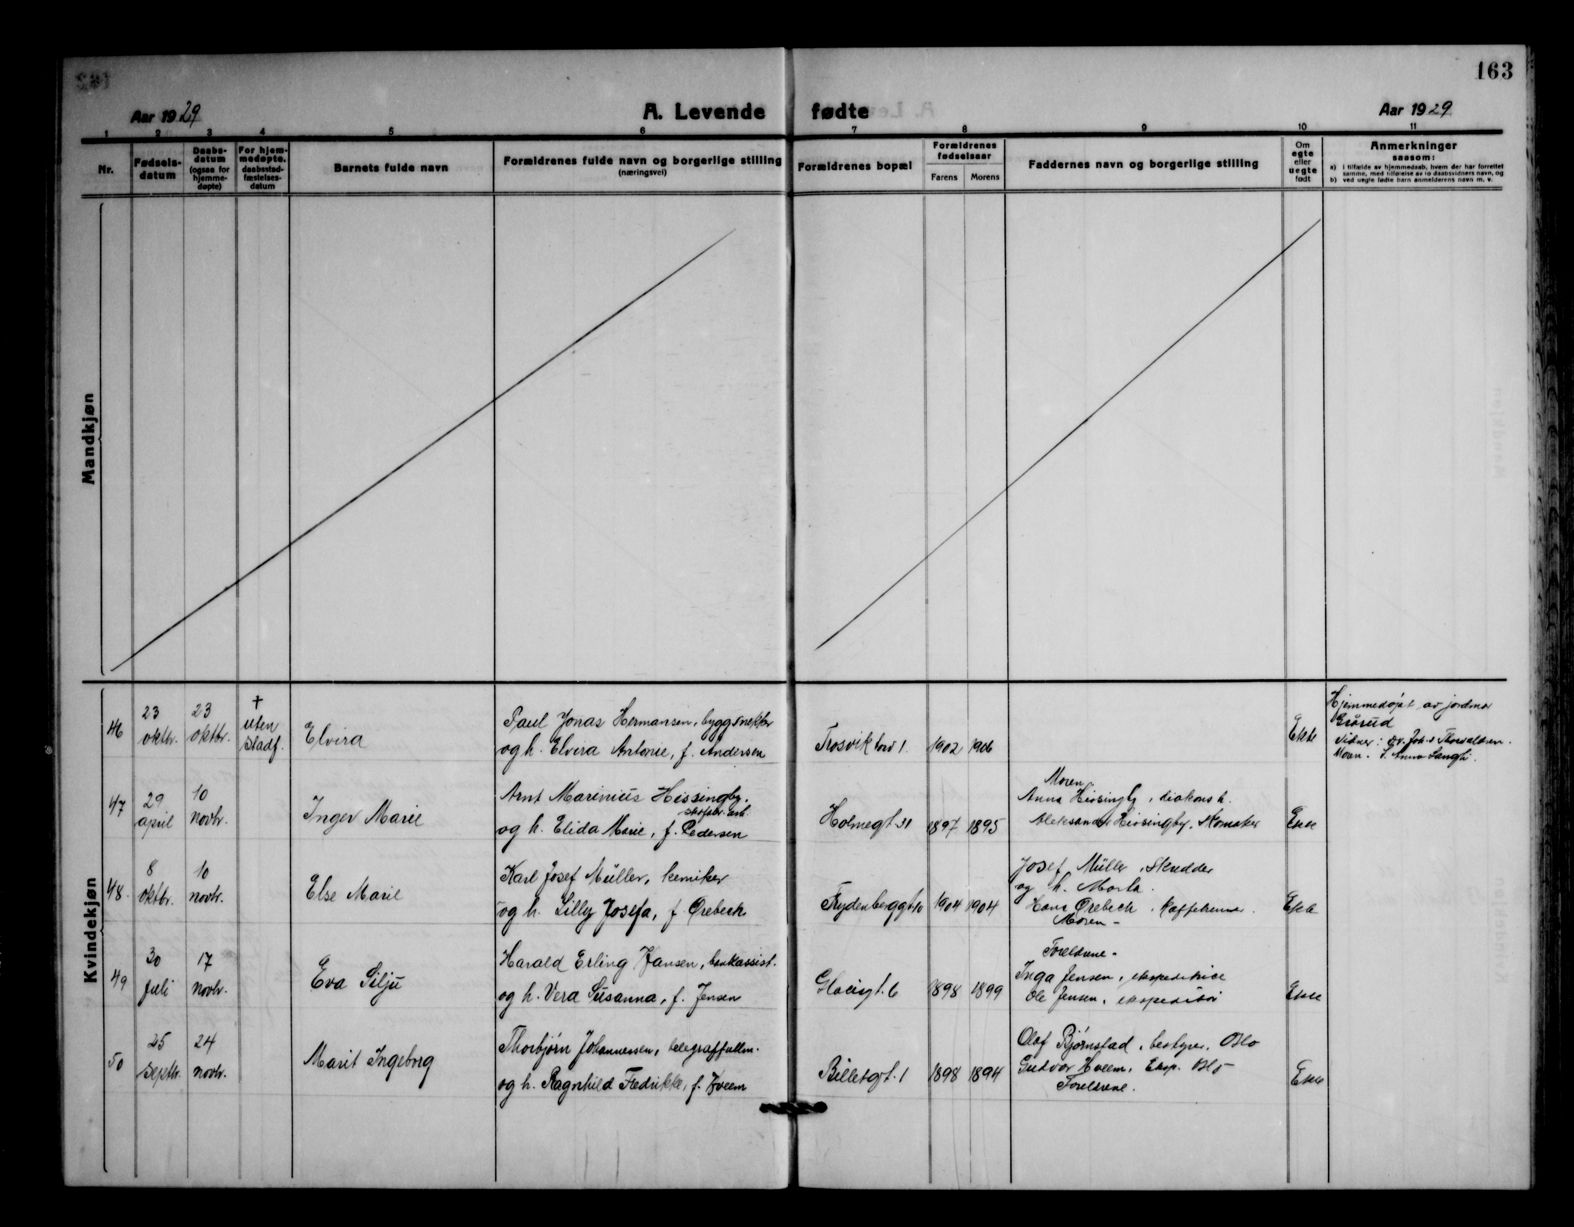 163
Aar 1929
A. Levende fødte
Aar 1929
1 2 3 4 5 6 7 8 9 10 11
Nr.
Fødsels-
datum
Daabs-
datum
(ogsaa for
hjemme-
døpte)
For hjem-
medøpte.
daabsstad-
fæstelses-
datum
Barnets fulde navn
Forældrenes fulde navn og borgerlige stilling
(næringsvei)
Forældrenes bopæl
Forældrenes
fødselsaar
Farens Morens
Faddernes navn og borgerlige stilling
Om
egte
eller
uegte
født
Anmerkninger
saasom:
a) i tilfælde av hjemmedaab, hvem der har forrettet
samme, med tilførelse av to daabsvidners navn, og
b) ved uegte fødte barn anmelderens navn m. v.
Mandkjøn
Kvindekjøn
46
23
oktbr.
23
oktbr.
†
uten
stadf.
Elvira
Paul Jonas Hermansen, byggsnekker
og h. Elvira Antonie, f. Andersen
Trosvik 1.
1902 1906
Ekte
Hjemmedøpt av jordmor
47
29
april
10
novbr.
Inger Marie
Arnt Marinius Hissingby,
og h. Elida Marie, f. Pedersen
Holmegt 31
1897 1895
Moren
Anna Hissingby, diakoniss.
Aleksander Hissingby, skomaker
Ekte
48.
8
oktbr.
10
novbr.
Else Marie
Karl Josef Müller, kemiker
og h. Lilly Josefa, f. Ørebeck
Frydenberggt 10
1904 1904
Josef Müller, skredder
og h. Marta.
Hans Ørebeck,
Moren -
Ekte
49
30
juli
17
novbr.
Eva Silju
Harald Erling Jansen, bankassist.
og h. Vera Susanna, f. Jensen
Glacigt. 6
1898 1899
Foreldrene -
Inga Jensen, ekspeditrice
Ole Jensen, ekspeditør
Ekte
50
25
septbr.
24
novbr.
Marit Ingeborg
Thorbjørn Johannessen, telegraffullm.
og h. Ragnhild Fredrikke, f. Hveem
Billetgt. 1
1898 1894
Olaf Bjørnstad, bestyrer, Oslo
Gudvor Hveem, Eksp. Oslo
Foreldrene.
Ekte